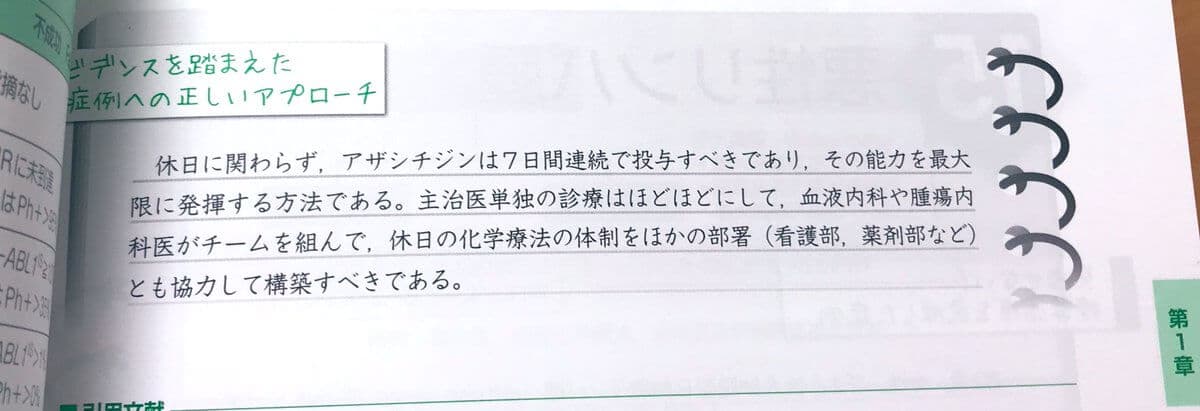 不成功
摘なし
Rに未到達
はPh+>95
-ABL1
Ph+>35%
ABL1
Ph+>0%
ビデンスを踏まえた
症例への正しいアプローチ
休日に関わらず，アザシチジンは7日間連続で投与すべきであり，その能力を最大
限に発揮する方法である。主治医単独の診療はほどほどにして，血液内科や腫瘍内
科医がチームを組んで，休日の化学療法の体制をほかの部署（看護部，薬剤部など）
とも協力して構築すべきである。
引用文献
第1章